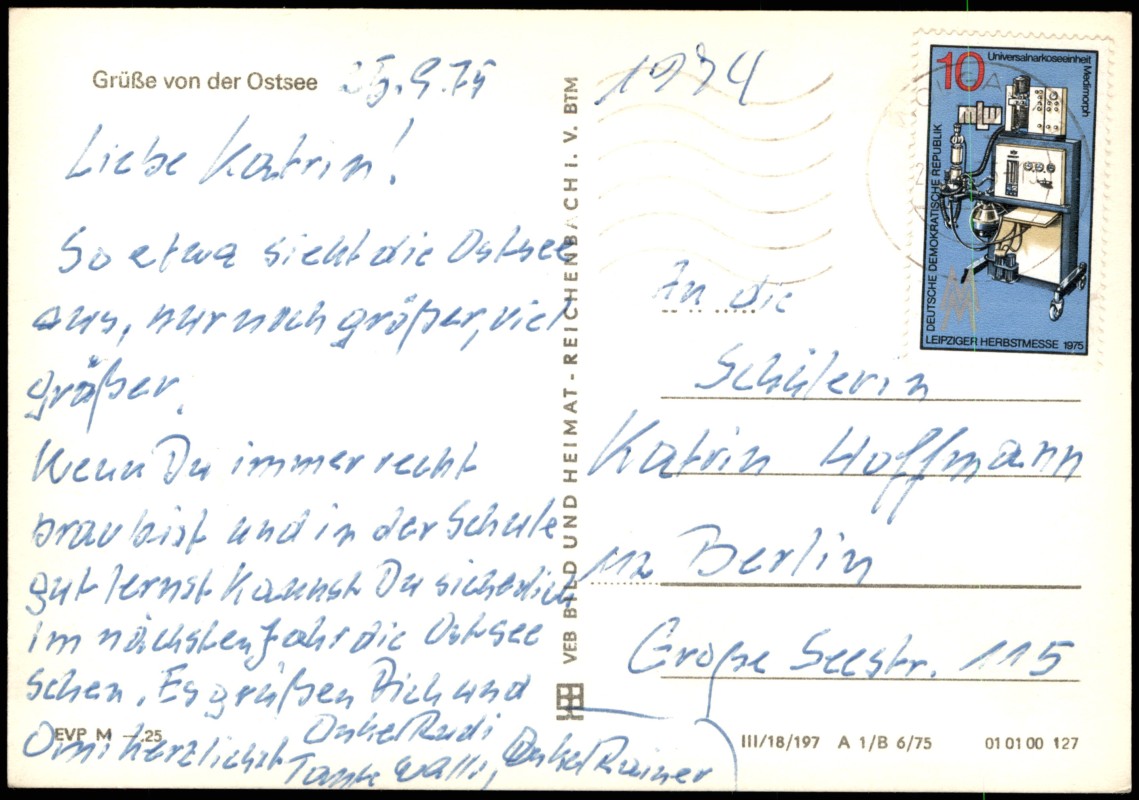 Grüße von der Ostsee
25.9.75
Liebe Katrin!
So etwa sieht die Ostsee
aus, nur noch größer, viel
größer.
Wenn Du immer recht
brav bist und in der Schule
gut lernst kannst Du sicherlich
im nächsten Jahr die Ostsee
sehen. Es grüßen Dich und
Omi herzlichst Onkel Rudi
Tante Walli, Onkel Rainer
EVP M -.25
VEB BILD UND HEIMAT - REICHENBACH i. V. BTM
10
Universalnarkoseeinheit
Medimorph
DEUTSCHE DEMOKRATISCHE REPUBLIK
LEIPZIGER HERBSTMESSE 1975
An die
Schülerin
Katrin Hoffmann
112 Berlin
Große Seestr. 115
III/18/197 A 1/B 6/75
01 01 00 127